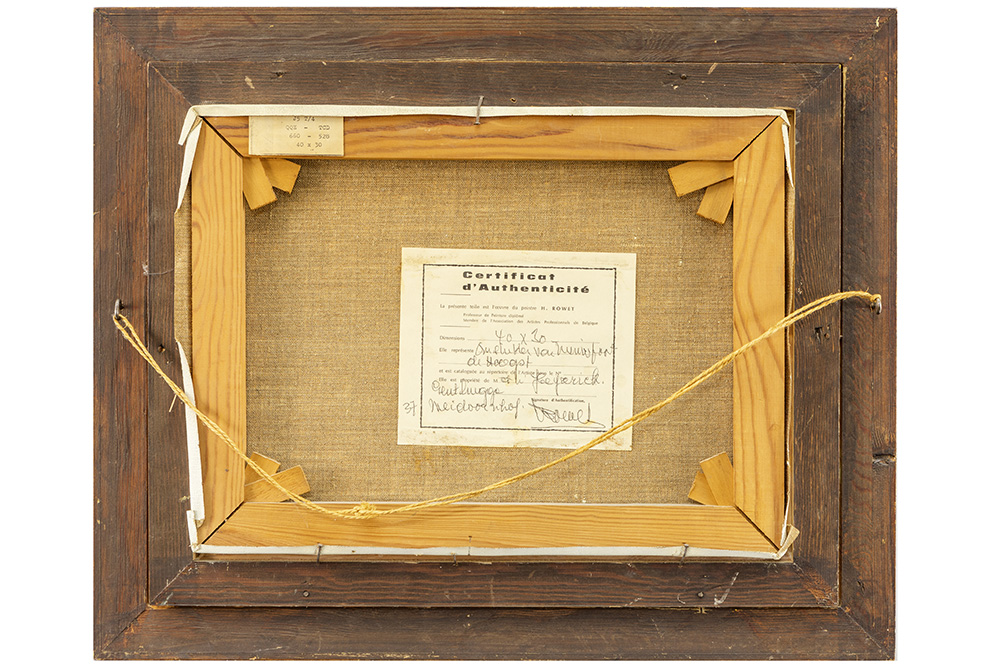 25 2/4
660 - 520
40 x 30
Certificat
d'Authenticité
La présente toile est l'œuvre du peintre H. ROWET
Professeur de Peinture diplômé
Membre de l'Association des Artistes Professionnels de Belgique
Dimensions 40 x 30
Elle représente
de Hoogst
et est cataloguée au répertoire de l'Artiste sous le N°
Elle est propriété de M
Gentbrugge
Signature d'Authentification.
37 Meidoornhof.